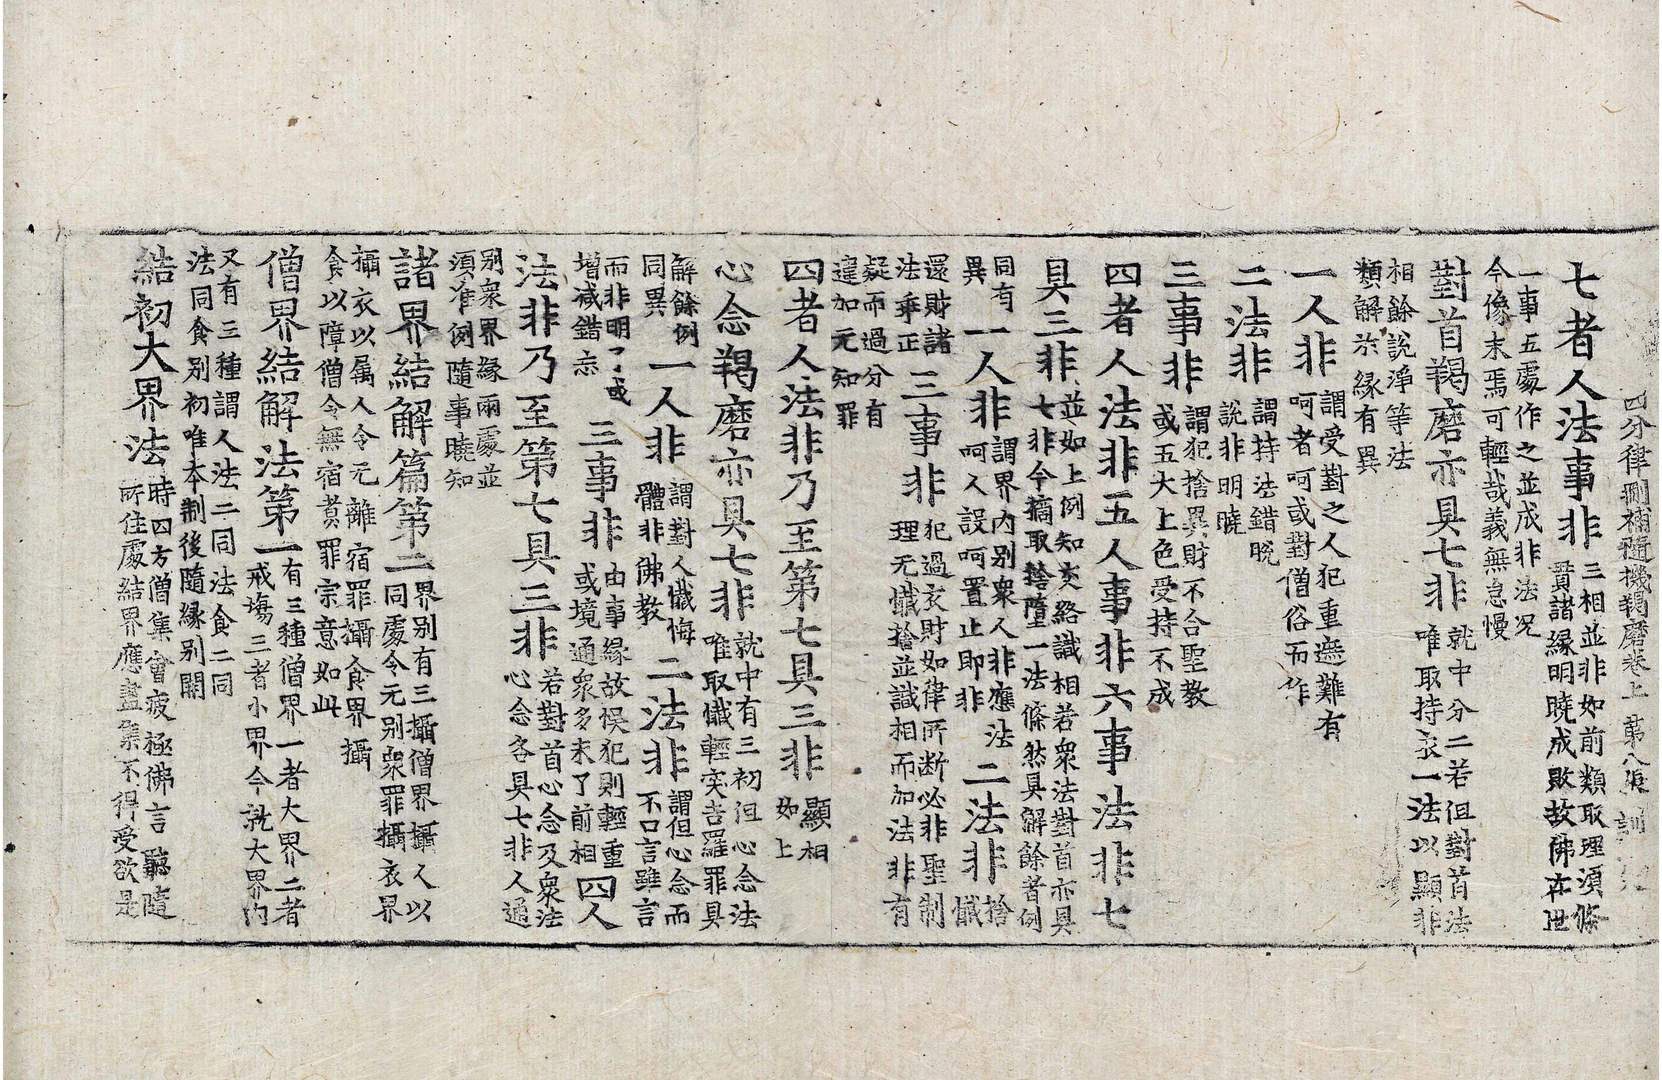 四分律刪補隨機羯磨卷上 第八張
七者人法事非三相並非如前類取理須條
貫諸緣明曉成敗故佛在世
一事五處作之並成非法况
今像末焉可輕哉義無怠慢
對首羯磨亦具七非就中分二若但對首法
唯取持衣一法以顯非
相餘說淨等法
類解於緣有異
一人非謂受對之人犯重遮難有
呵者呵或對僧俗而作
二法非謂持法錯脫
說非明曉
三事非謂犯捨異財不合聖教
或五大上色受持不成
四者人法非五人事非六事法非七
具三非並如上例知交絡識相若衆法對首亦具
七非今摘取捨墮一法條然具解餘者例
同有
異
一人非謂界内別衆人非應法
呵人設呵置止即非
二法非捨
懺
還財諸
法乖正
三事非犯過衣財如律所断必非聖制
理无懺捨並識相而加法非有
疑而過分有
違加无知罪
四者人法非乃至第七具三非顯相
如上
心念羯磨亦具七非就中有三初但心念法
唯取懺輕突吉羅罪具
解餘例
同異
一人非謂對人懺悔
體非佛教
二法非謂但心念而
不口言雖言
而非明了或
增减錯忘
三事非由事緣故悞犯則輕重
或境通衆多未了前相
四人
法非乃至第七具三非若對首心念及衆法
心念各具七非人通
別衆界緣兩處並
須准例隨事曉知
諸界結解篇第二界别有三攝僧界攝人以
同處令无别衆罪攝衣界
攝衣以属人令无離宿罪攝食界攝
食以障僧令無宿煑罪宗意如此
僧界結解法第一有三種僧界一者大界二者
戒塲三者小界今就大界内
又有三種謂人法二同法食二同
法同食别初唯本制後隨緣别開
結初大界法時四方僧集會疲極佛言聽隨
所住處結界應盡集不得受欲是